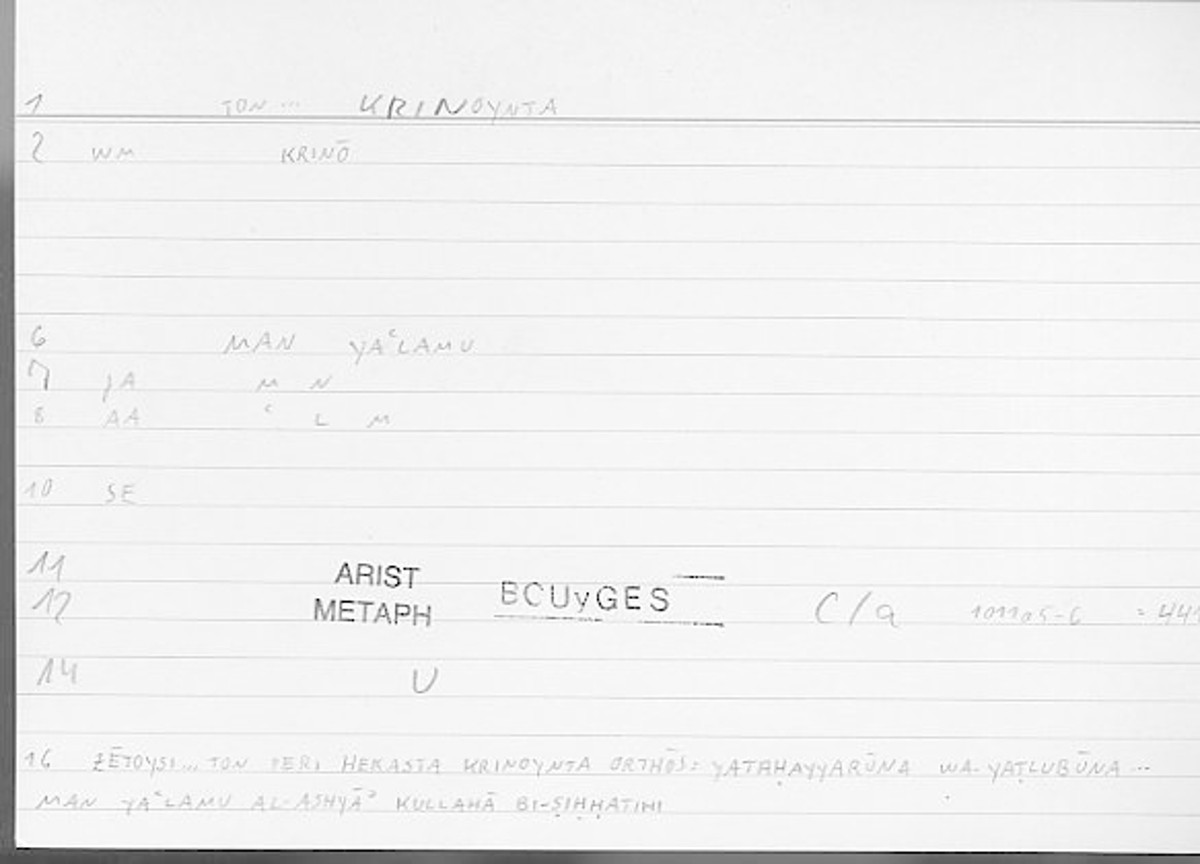 1 TON ... KRINOYNTA
2 WM KRINŌ
6 MAN YAʿLAMU
7 JA M N
8 AA ʿ L M
10 SE
11 ARIST
12 METAPH BCUyGES C/a 1011a5-6 = 441
14 U
16 ZĒTOYSI... TON PERI HEKASTA KRINOYNTA ORTHŌS: YATAḤAYYARŪNA WA-YAṬLUBŪNA ...
MAN YAʿLAMU AL-ASHYĀʾ KULLAHĀ BI-ṢIḤḤATIHI